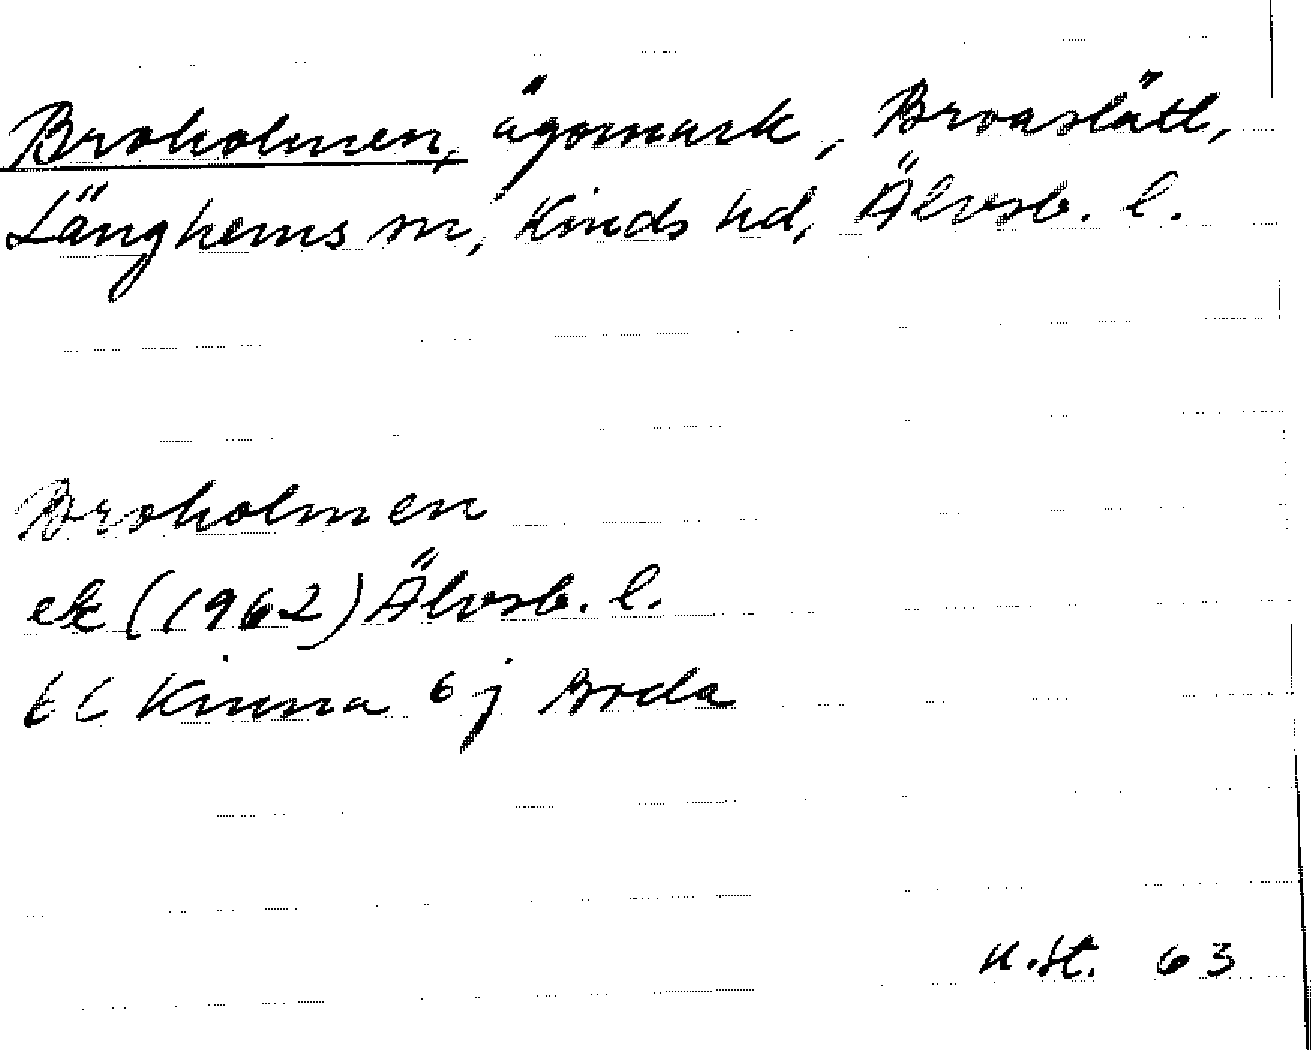 Broholmen, ägomark, Broaslätt,
Länghems sn, Kinds hd, Älvsb. l.
Broholmen
ek (1962) Älvsb. l.
6C Kinna 6j Boda
u.st. 63